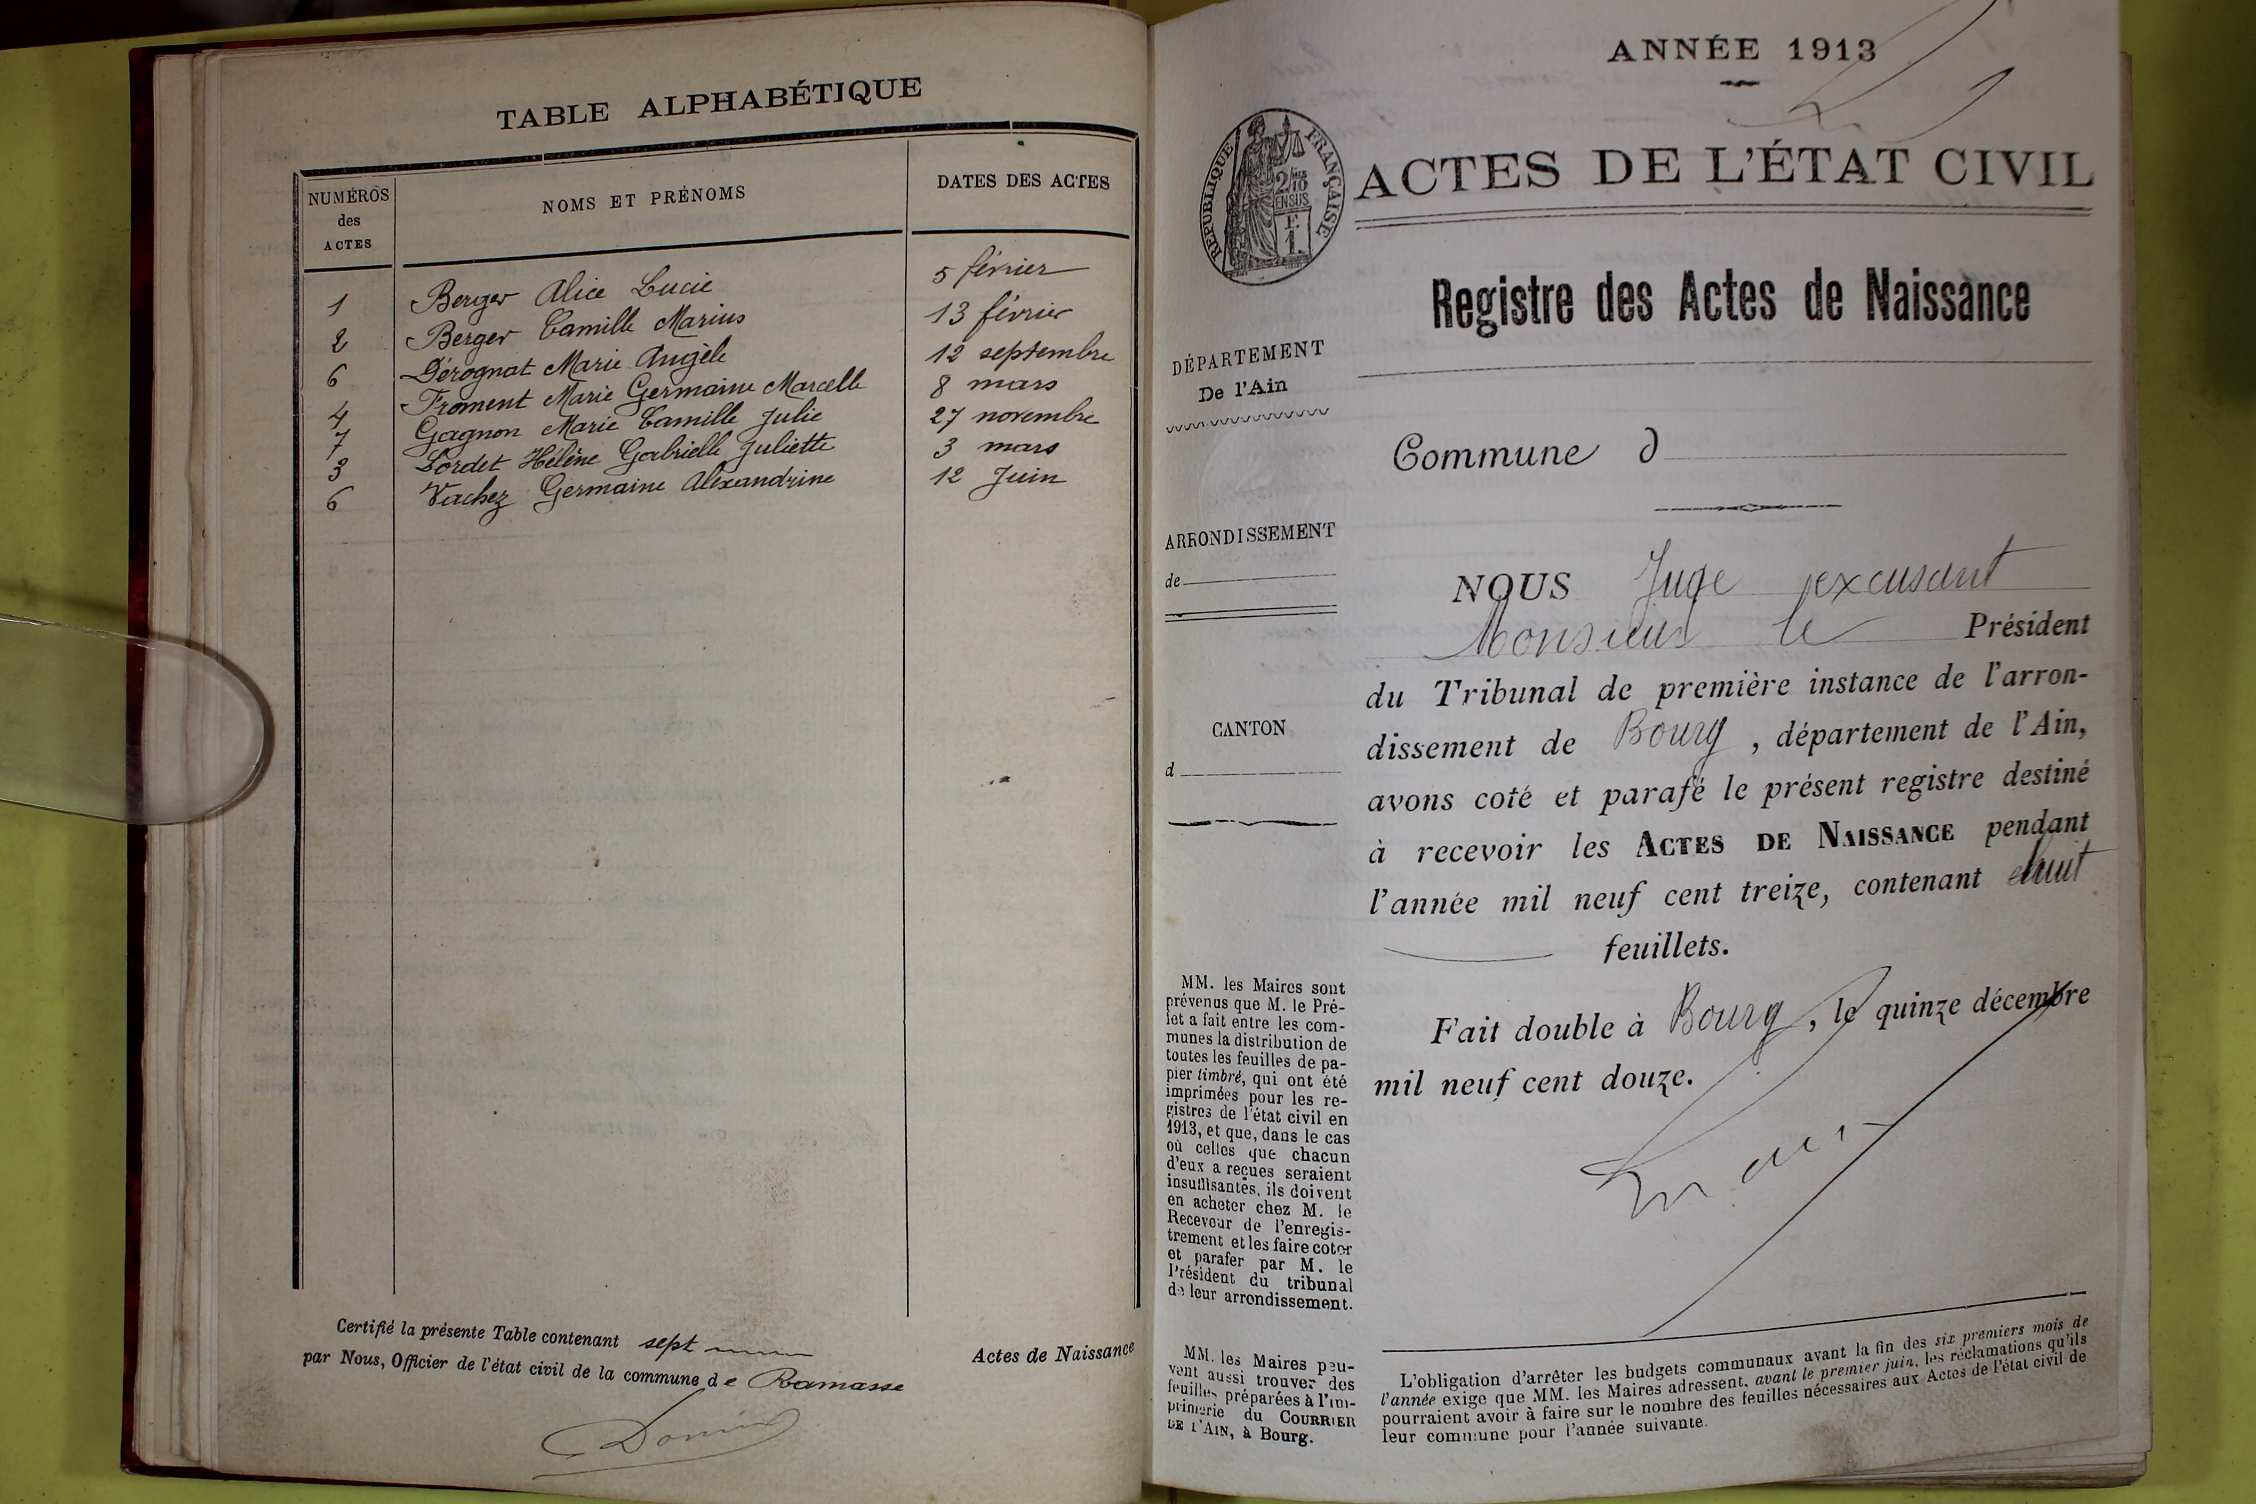 TABLE ALPHABÉTIQUE
NUMÉROS des ACTES
NOMS ET PRÉNOMS
DATES DES ACTES
1 Berger Alice Lucie 5 février
2 Berger Camille Marius 13 février
6 Dérognat Marie Angèle 12 septembre
4 Froment Marie Germaine Marcelle 8 mars
7 Gagnon Marie Camille Julie 27 novembre
3 Lordet Hélène Gabrielle Juliette 3 mars
6 Vachez Germaine Alexandrine 12 Juin
Certifié la présente Table contenant sept Actes de Naissance
par Nous, Officier de l'état civil de la commune de Ramasse
ANNÉE 1913
RÉPUBLIQUE FRANÇAISE
2/10
EN SUS
F.
1.
ACTES DE L'ÉTAT CIVIL
Registre des Actes de Naissance
DÉPARTEMENT
De l'Ain
Commune d
ARRONDISSEMENT
de
CANTON
d
NOUS Juge excusant
Monsieur le Président
du Tribunal de première instance de l'arron-
dissement de Bourg, département de l'Ain,
avons coté et parafé le présent registre destiné
à recevoir les ACTES DE NAISSANCE pendant
l'année mil neuf cent treize, contenant huit
feuillets.
Fait double à Bourg, le quinze décembre
mil neuf cent douze.
MM. les Maires sont
prévenus que M. le Pré-
fet a fait entre les com-
munes la distribution de
toutes les feuilles de pa-
pier timbré, qui ont été
imprimées pour les re-
gistres de l'état civil en
1913, et que, dans le cas
où celles que chacun
d'eux a reçues seraient
insuffisantes, ils doivent
en acheter chez M. le
Receveur de l'enregis-
trement et les faire coter
et parafer par M. le
Président du tribunal
de leur arrondissement.
MM. les Maires peu-
vent aussi trouver des
feuilles préparées à l'im-
primerie du COURRIER
DE L'AIN, à Bourg.
L'obligation d'arrêter les budgets communaux avant la fin des six premiers mois de
l'année exige que MM. les Maires adressent, avant le premier juin, les réclamations qu'ils
pourraient avoir à faire sur le nombre des feuilles nécessaires aux Actes de l'état civil de
leur commune pour l'année suivante.